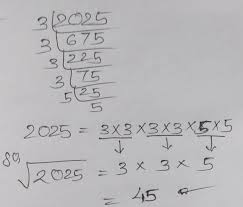 3 | 2025
3 | 675
3 | 225
3 | 75
5 | 25
5
2025 = 3×3 × 3×3 × 5×5
so, √2025 = 3 × 3 × 5
= 45